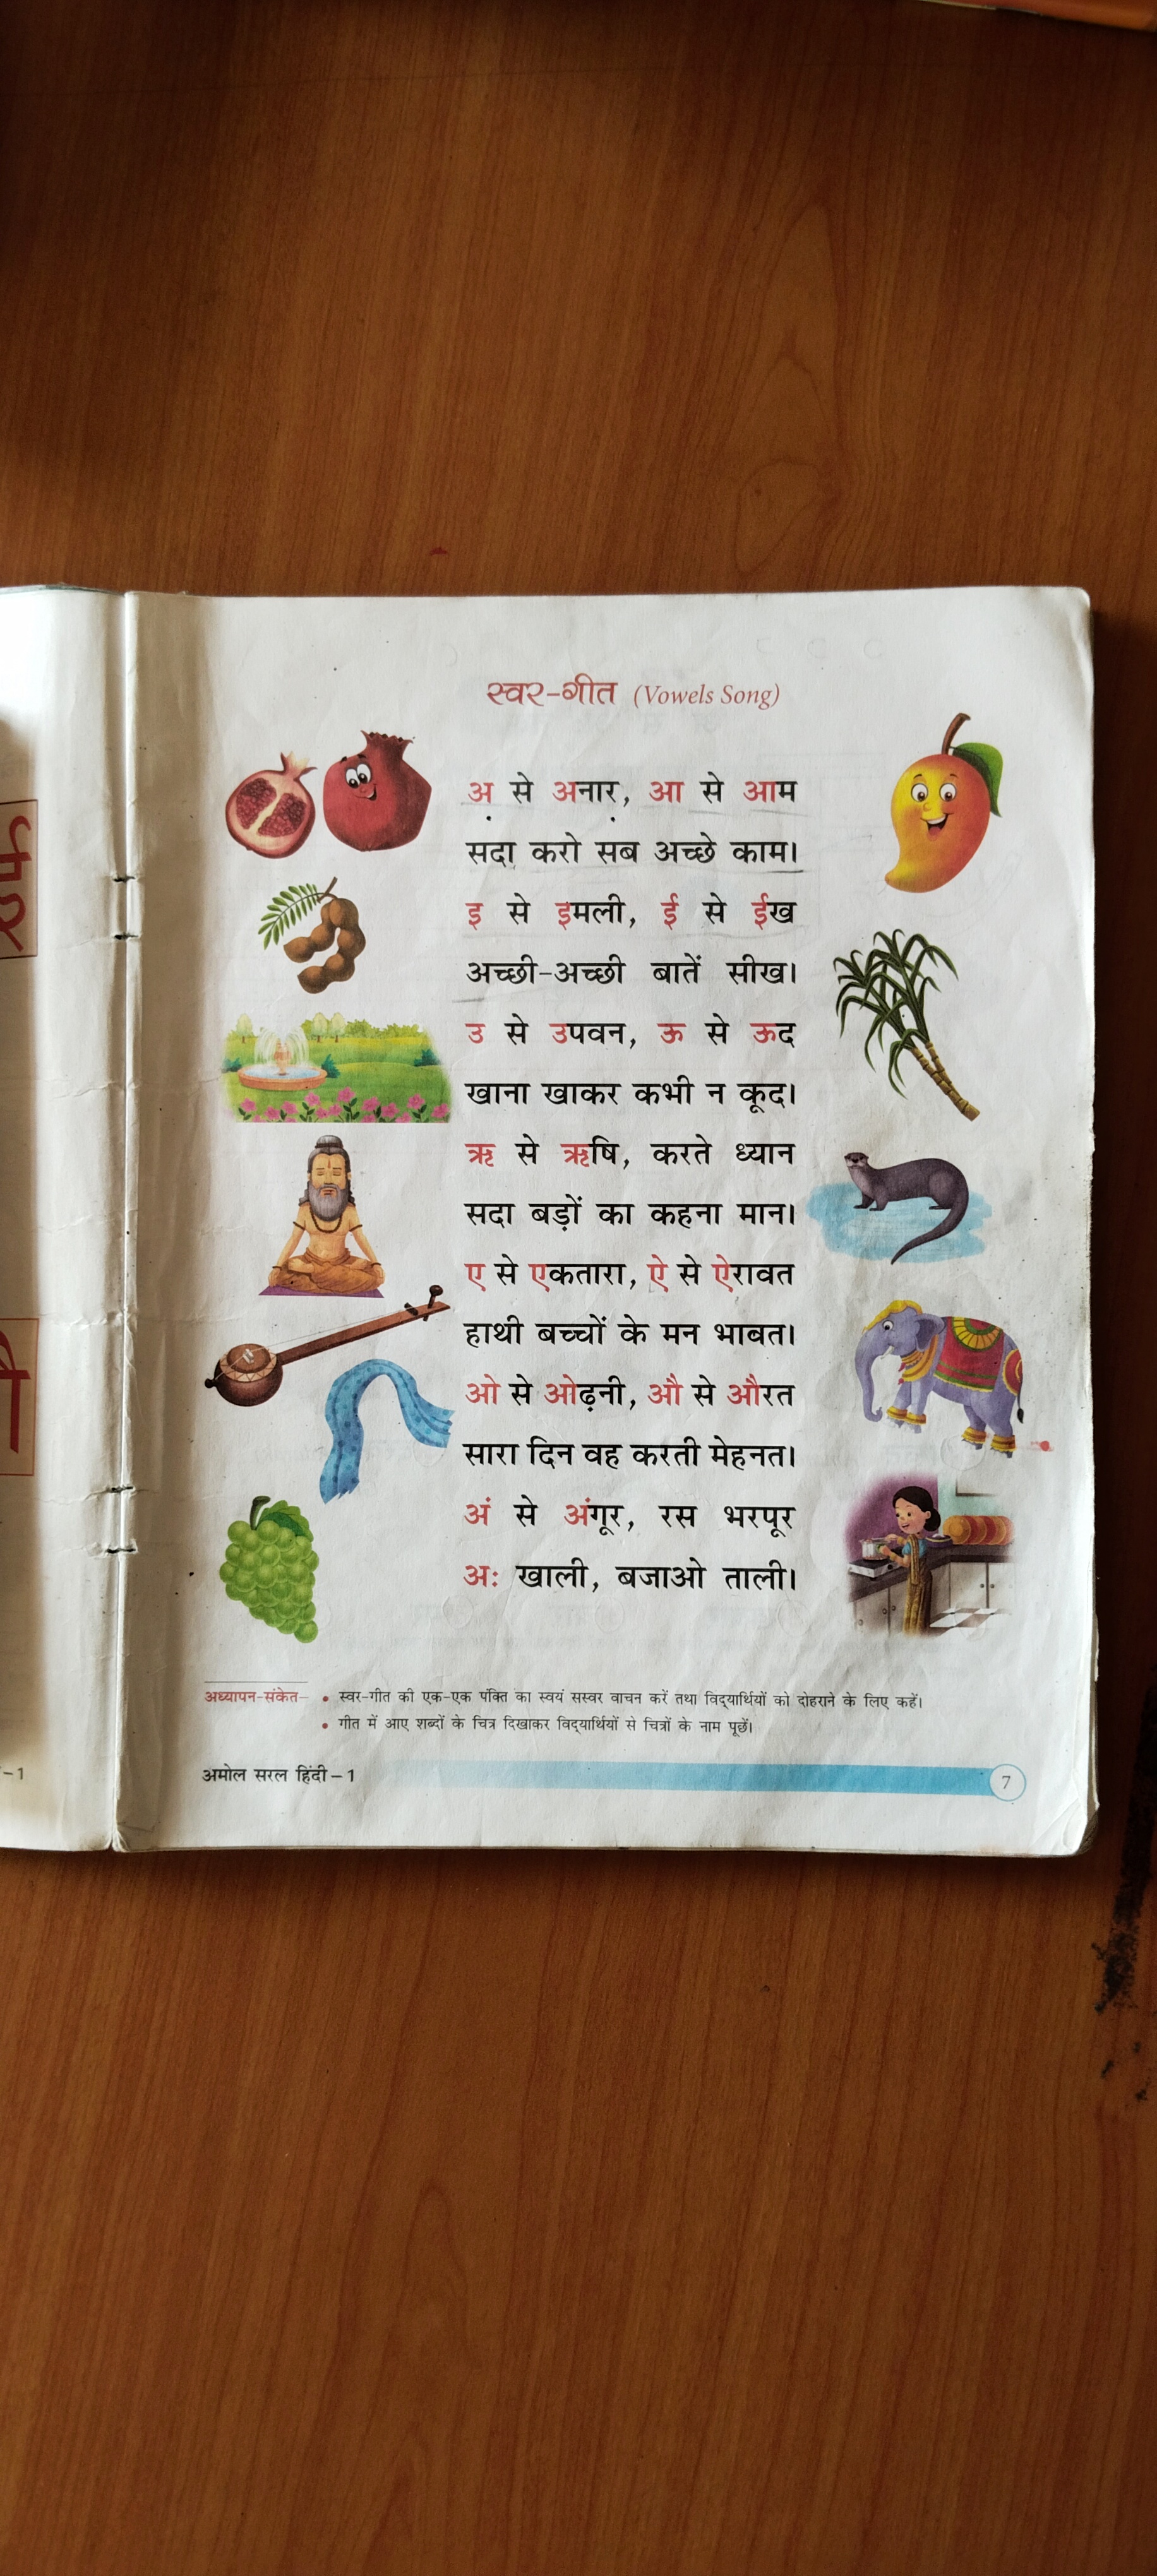 स्वर-गीत (Vowels Song)
अ से अनार, आ से आम
सदा करो सब अच्छे काम।
इ से इमली, ई से ईख
अच्छी-अच्छी बातें सीख।
उ से उपवन, ऊ से ऊद
खाना खाकर कभी न कूद।
ऋ से ऋषि, करते ध्यान
सदा बड़ों का कहना मान।
ए से एकतारा, ऐ से ऐरावत
हाथी बच्चों के मन भावत।
ओ से ओढ़नी, औ से औरत
सारा दिन वह करती मेहनत।
अं से अंगूर, रस भरपूर
अः खाली, बजाओ ताली।
अध्यापन-संकेत– • स्वर-गीत की एक-एक पंक्ति का स्वयं सस्वर वाचन करें तथा विद्यार्थियों को दोहराने के लिए कहें।
• गीत में आए शब्दों के चित्र दिखाकर विद्यार्थियों से चित्रों के नाम पूछें।
अमोल सरल हिंदी – 1
7